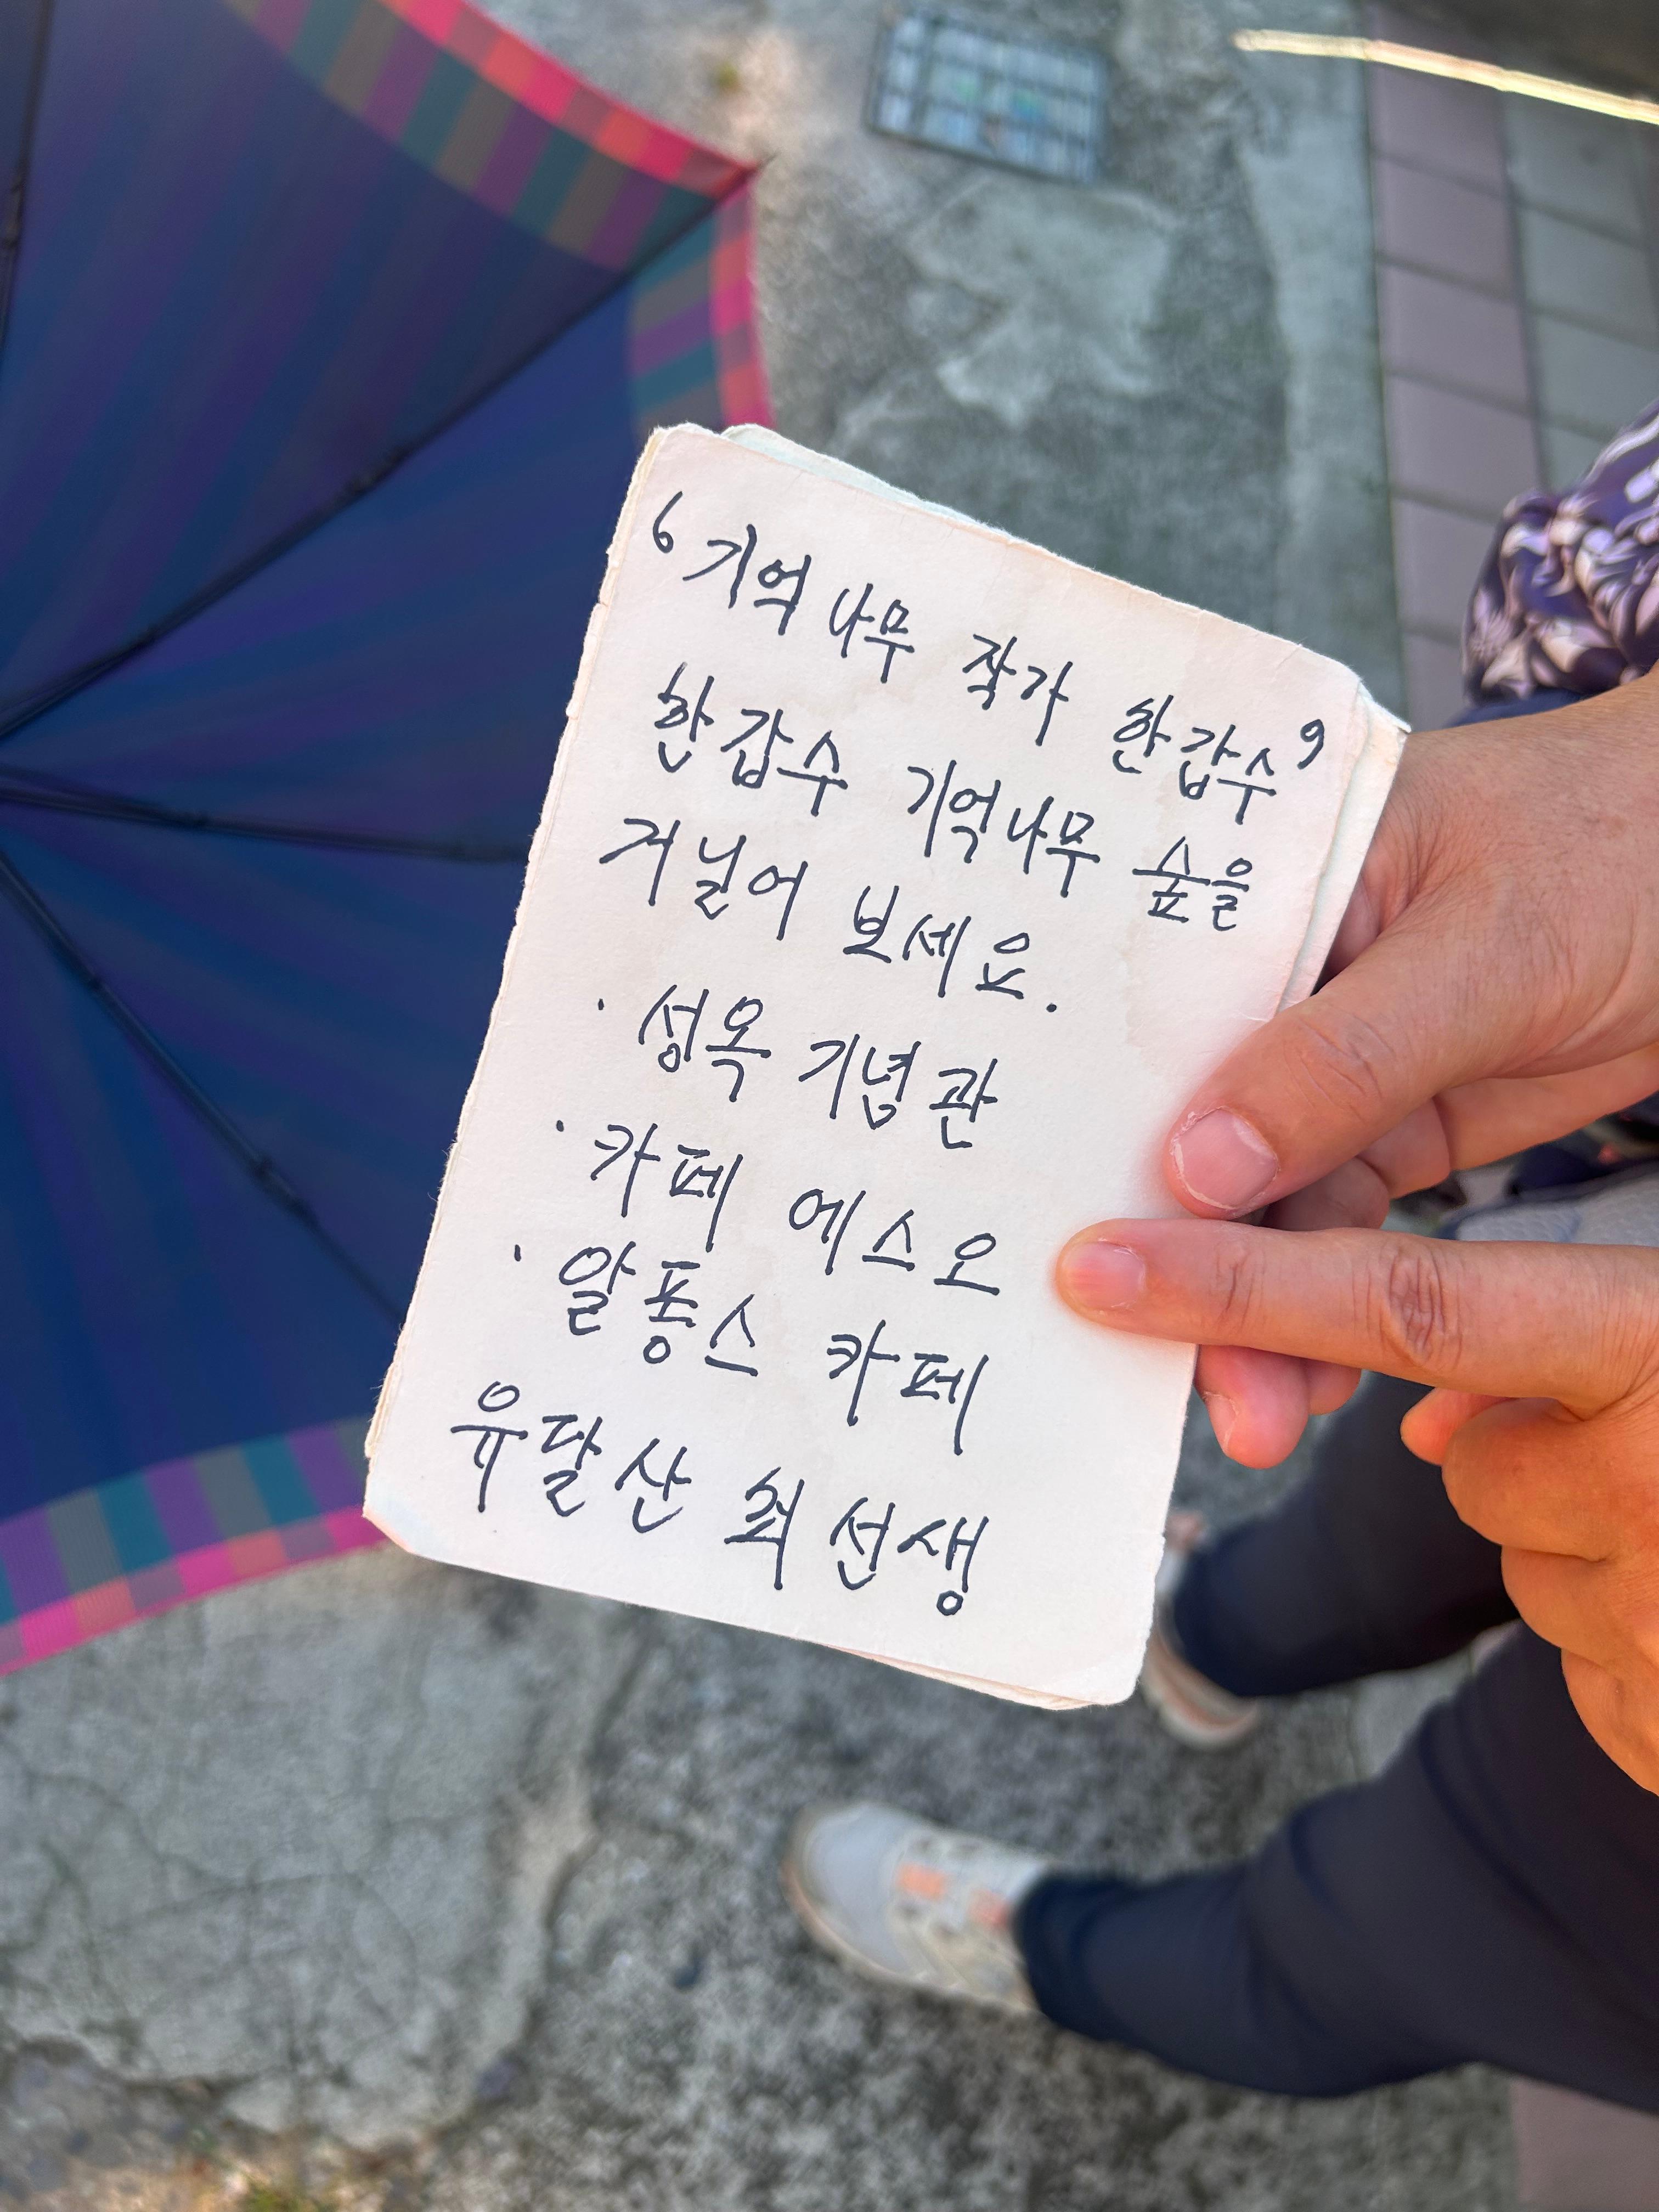 ‘기억나무 작가 한갑수’
한갑수 기억나무 숲을
거닐어 보세요.
· 성옥 기념관
· 카페 에스오
· 알퐁스 카페
유달산 최 선생